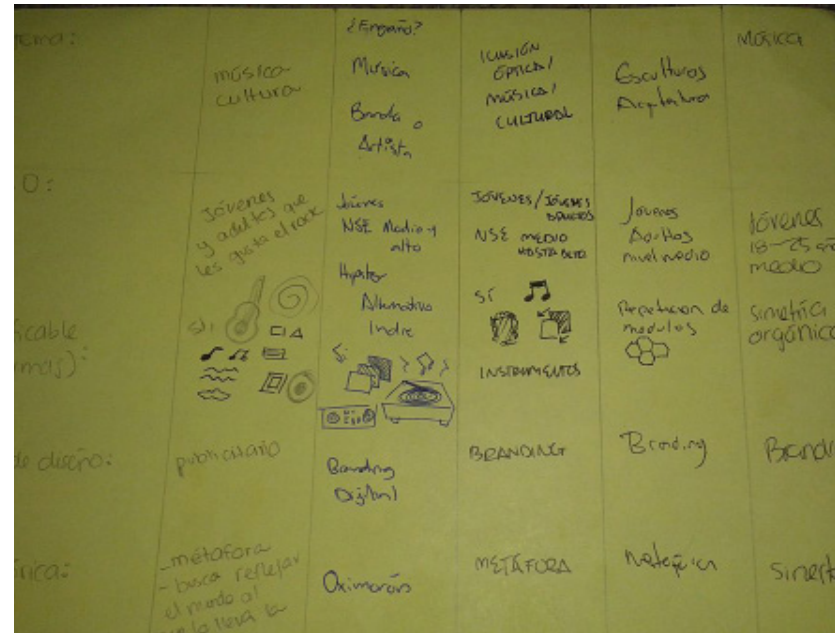 tema:
música
cultura
¿Engaño?
Música
Banda o
Artista
ILUSIÓN
ÓPTICA/
MÚSICA/
CULTURAL
Esculturas
Música
O:
Jóvenes
y adultos que
les gusta el rock
Jóvenes
NSE Medio y
alto
Hipster
Alternativo
Indie
JÓVENES/JÓVENES
NSE MEDIO
HASTA ALTO
Jovenes
Adultos
nivel medio
Jóvenes
18-25 añ
medio
ficable
rmas):
si:
Si
SÍ
INSTRUMENTOS
Repeticion de
modulos
simetría
orgánica
de diseño:
publicitario
Branding
Digital
BRANDING
Branding
Brandi
rica:
-metáfora
- busca reflejar
el modo al
lleva la
Oximorón
METÁFORA